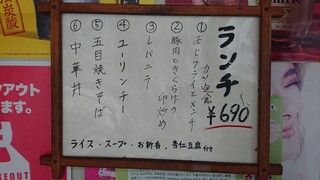 ランチ
¥690
① あじフライとメンチカツ定食
② 豚肉ときくらげの卵炒め
③ レバニラ
④ ユーリンチー
⑤ 五目焼きそば
⑥ 中華丼
ライス・スープ・お新香・杏仁豆腐付き